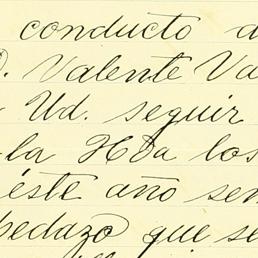 conducto d
D. Valente Va
Ud. seguir
la Hda los
éste año sem
pedazo que se